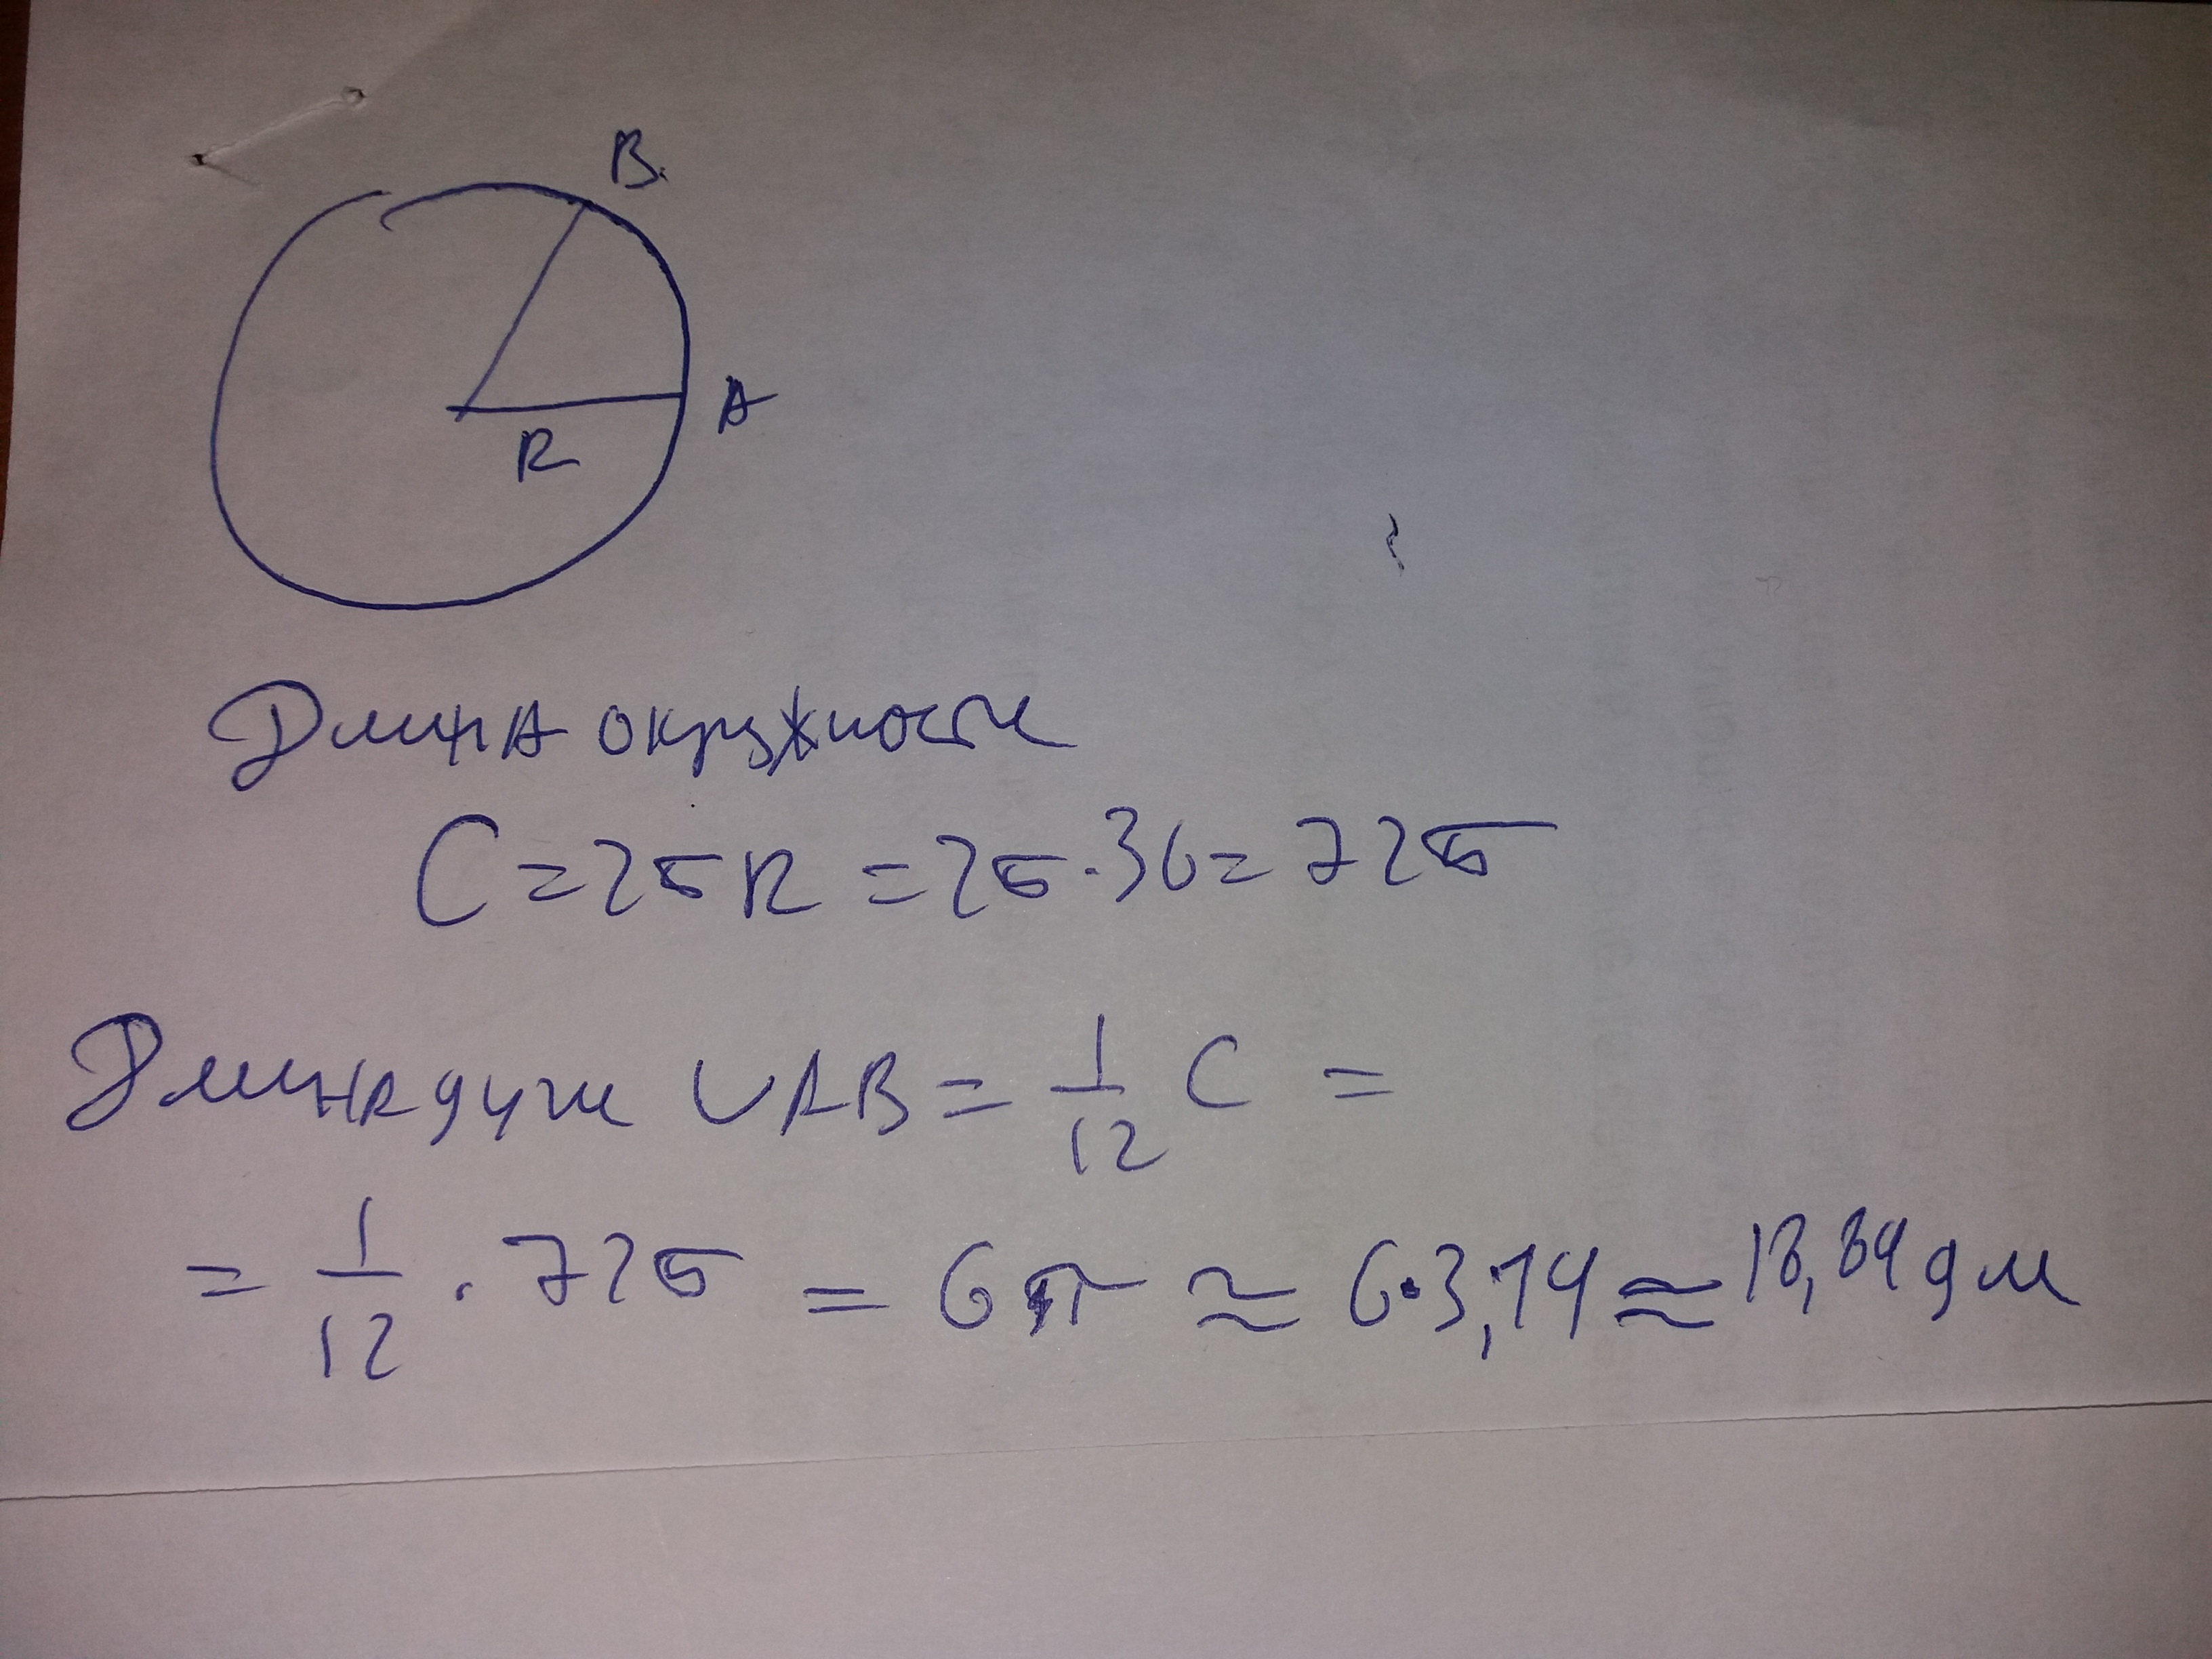 B
A
R
Длина окружности
C = 2πR = 2π·36 = 72π
Длина дуги ∪AB = 1/12 C =
= 1/12 · 72π = 6π ≈ 6·3,14 ≈ 18,84 дм